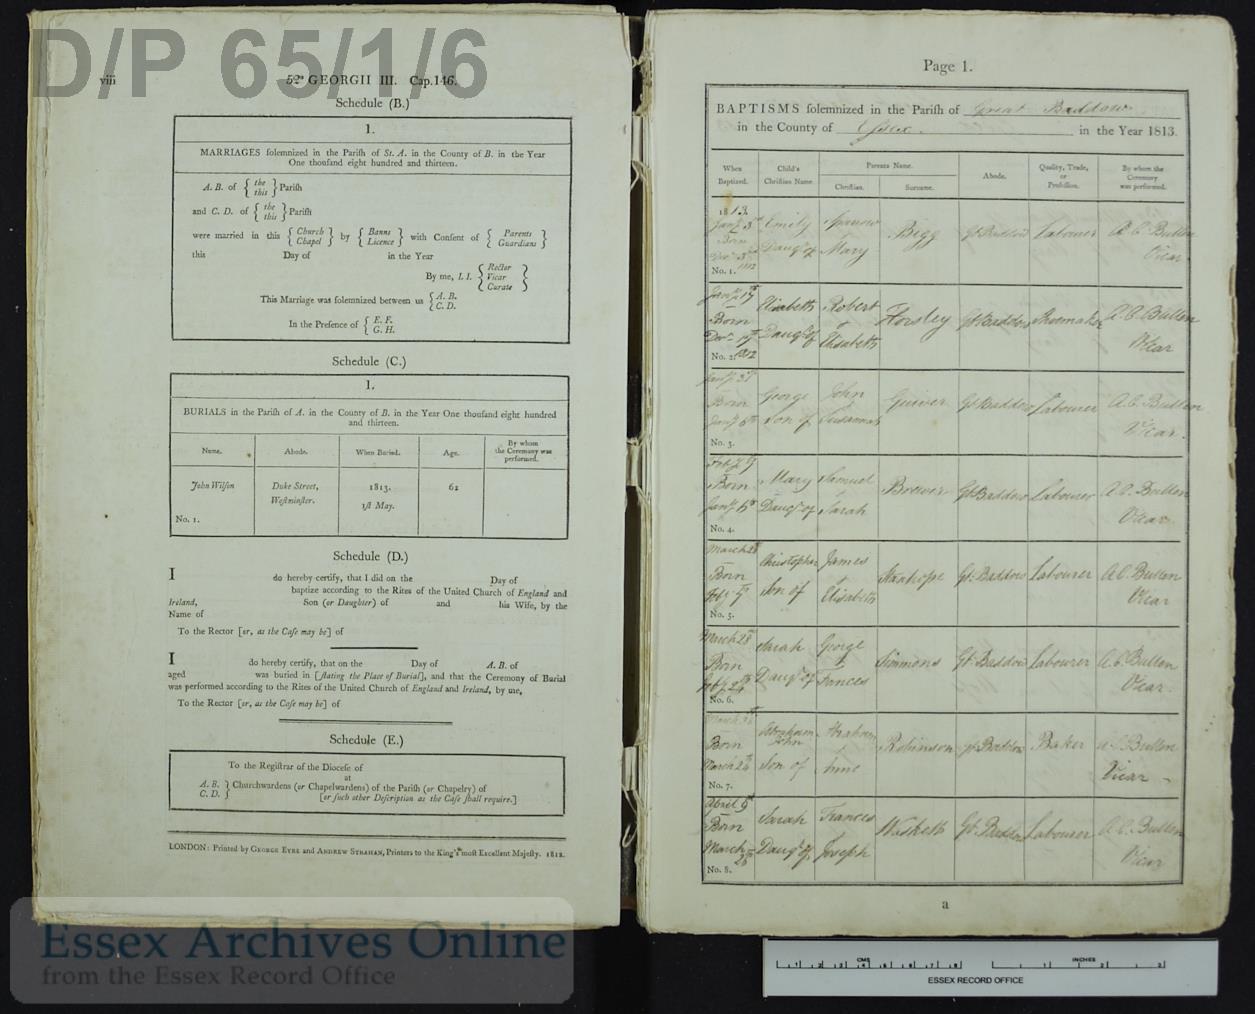 D/P 65/1/6
viii 52° GEORGII III. Cap.146.
Schedule (B.)
1.
MARRIAGES ſolemnized in the Pariſh of St. A. in the County of B. in the Year
One thouſand eight hundred and thirteen.
A. B. of { the this } Pariſh
and C. D. of { the this } Pariſh
were married in this { Church Chapel } by { Banns Licence } with Conſent of { Parents Guardians }
this Day of in the Year
By me, I. I. { Rector Vicar Curate }
This Marriage was ſolemnized between us { A. B. C. D.
In the Preſence of { E. F. G. H.
Schedule (C.)
1.
BURIALS in the Pariſh of A. in the County of B. in the Year One thouſand eight hundred
and thirteen.
Name. Abode. When Buried. Age. By whom the Ceremony was performed.
John Wilſon Duke Street, Weſtminſter. 1813. 1ſt May. 62
No. 1.
Schedule (D.)
I do hereby certify, that I did on the Day of
baptize according to the Rites of the United Church of England and
Ireland, Son (or Daughter) of and his Wife, by the
Name of
To the Rector [or, as the Caſe may be] of
I do hereby certify, that on the Day of A. B. of
aged was buried in [ſtating the Place of Burial], and that the Ceremony of Burial
was performed according to the Rites of the United Church of England and Ireland, by me,
To the Rector [or, as the Caſe may be] of
Schedule (E.)
To the Regiſtrar of the Dioceſe of
at
A. B. C. D. } Churchwardens (or Chapelwardens) of the Pariſh (or Chapelry) of
[or ſuch other Deſcription as the Caſe ſhall require.]
LONDON: Printed by GEORGE EYRE and ANDREW STRAHAN, Printers to the King's moſt Excellent Majeſty. 1812.
Page 1.
BAPTISMS ſolemnized in the Pariſh of Great Baddow
in the County of Essex in the Year 1813.
When Baptized. Child's Chriſtian Name. Parents Name. Chriſtian. Surname. Abode. Quality, Trade, or Profeſſion. By whom the Ceremony was performed.
1813. Jany 3d Born Decr 3d 1812 No. 1. Emily Daugr of Sparrow Mary Bigg Gt Baddow Labourer A. C. Bullen Vicar
Jany 17th Born Decr 19th 1812 No. 2. Elizabeth Daugr of Robert & Elizabeth Horsley Gt Baddow Shoemaker A. C. Bullen Vicar
Jany 31st Born Jany 6th No. 3. George Son of John Susannah Guiver Gt Baddow Labourer A. C. Bullen Vicar.
Feby 7 Born Jany 6th No. 4. Mary Daugr of Samuel & Sarah Brewer Gt Baddow Labourer A. C. Bullen Vicar
March 28th Born Feby No. 5. Christopher Son of James & Elizabeth Stanhope Gt Baddow Labourer A. C. Bullen Vicar
March 28th Born Feby 24th No. 6. Sarah Daugr of George & Frances Simmons Gt Baddow Labourer A. C. Bullen Vicar
March Born March 24th No. 7. Abraham John Son of Abraham Anne Robinson Gt Baddow Baker A. C. Bullen Vicar
April Born March No. 8. Sarah Daugr of Frances Joseph Gt Baddow Labourer A. C. Bullen Vicar
a
Essex Archives Online
from the Essex Record Office
CMS INCHES
ESSEX RECORD OFFICE